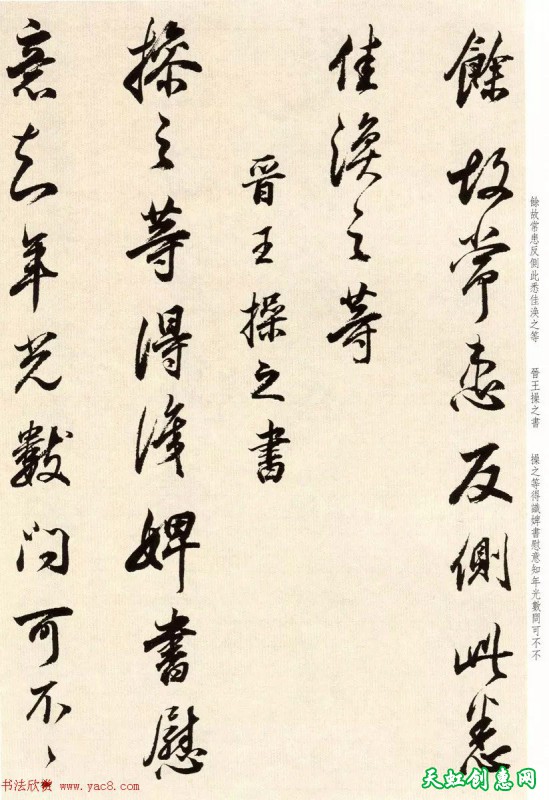 餘故常患反側此悉
佳渙之等
晉王操之書
操之等得識婢書慰
意知年光數問可不〻
餘故常患反側此悉佳渙之等 晉王操之書 操之等得識婢書慰意知年光數問可不不
书法欣赏 www.yac8.com
天虹创惠网